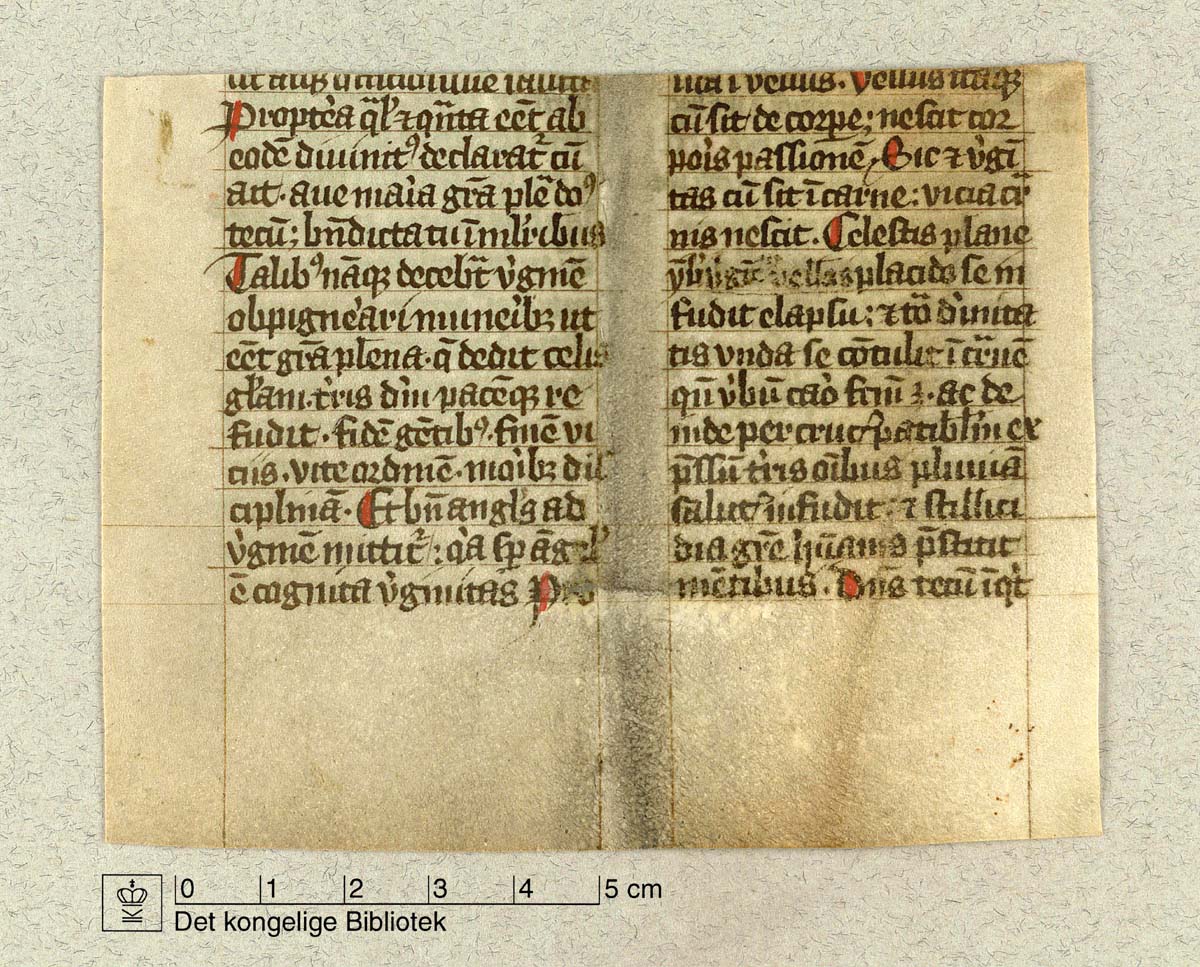 Propt̾ea q̄lꝭ ⁊ qn̄ta eēt ab
eodē diuinitꝰ declarat᷑ cū
ait · aue maı̓a grā plē doꝰ
tecū; bn̄dicta tu ı̄ mlı̓ibus
Talibꝰ nāqꝫ decebt̄ v̓gınē
obpigne̓ari mune̓ibꝫ ut
eēt grā plena · q̄ dedit celis
gl̓am · tr̓is dm̄ pacēqꝫ re
fudit · fidē gētibꝰ · finē vi
ciis · vite ordinē · moı̓bꝫ dis
cipliniā · Et bn̄ angls̓ ad
v̓ginē mittit᷑ : q̓a sp̄ āgel̓
ē cognita v̓ginitas Pro
ıta ı̄ vellus . Vellus itaqꝫ
cū sit de corpe̱; nescit cor
poı̓s passionē, Sic ⁊ v̓gı̄
tas cū sit ı̄ carne : vicia cr̓
nis nescit . Celestis plane
placido se in
fudit elapsu : ⁊ tō d̓inita
tis vnda se cōtulit ı̄ cr̓nē
qn̄ v̓bū caō fcm̄ ē · ac de
inde per cruc̓ patiblm̄ ex
pss̄ū tr̓is oı̄bus pluuiā
salut̓ infudit : ⁊ stillici
dia grē hūanis p̄stitit
mētibus . Dn̄s tecū ı̄qt̓
0 1 2 3 4 5 cm
Det kongelige Bibliotek